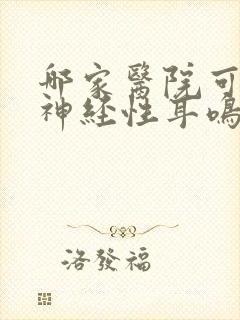 哪家醫院可
神经性耳鳴
洛發福